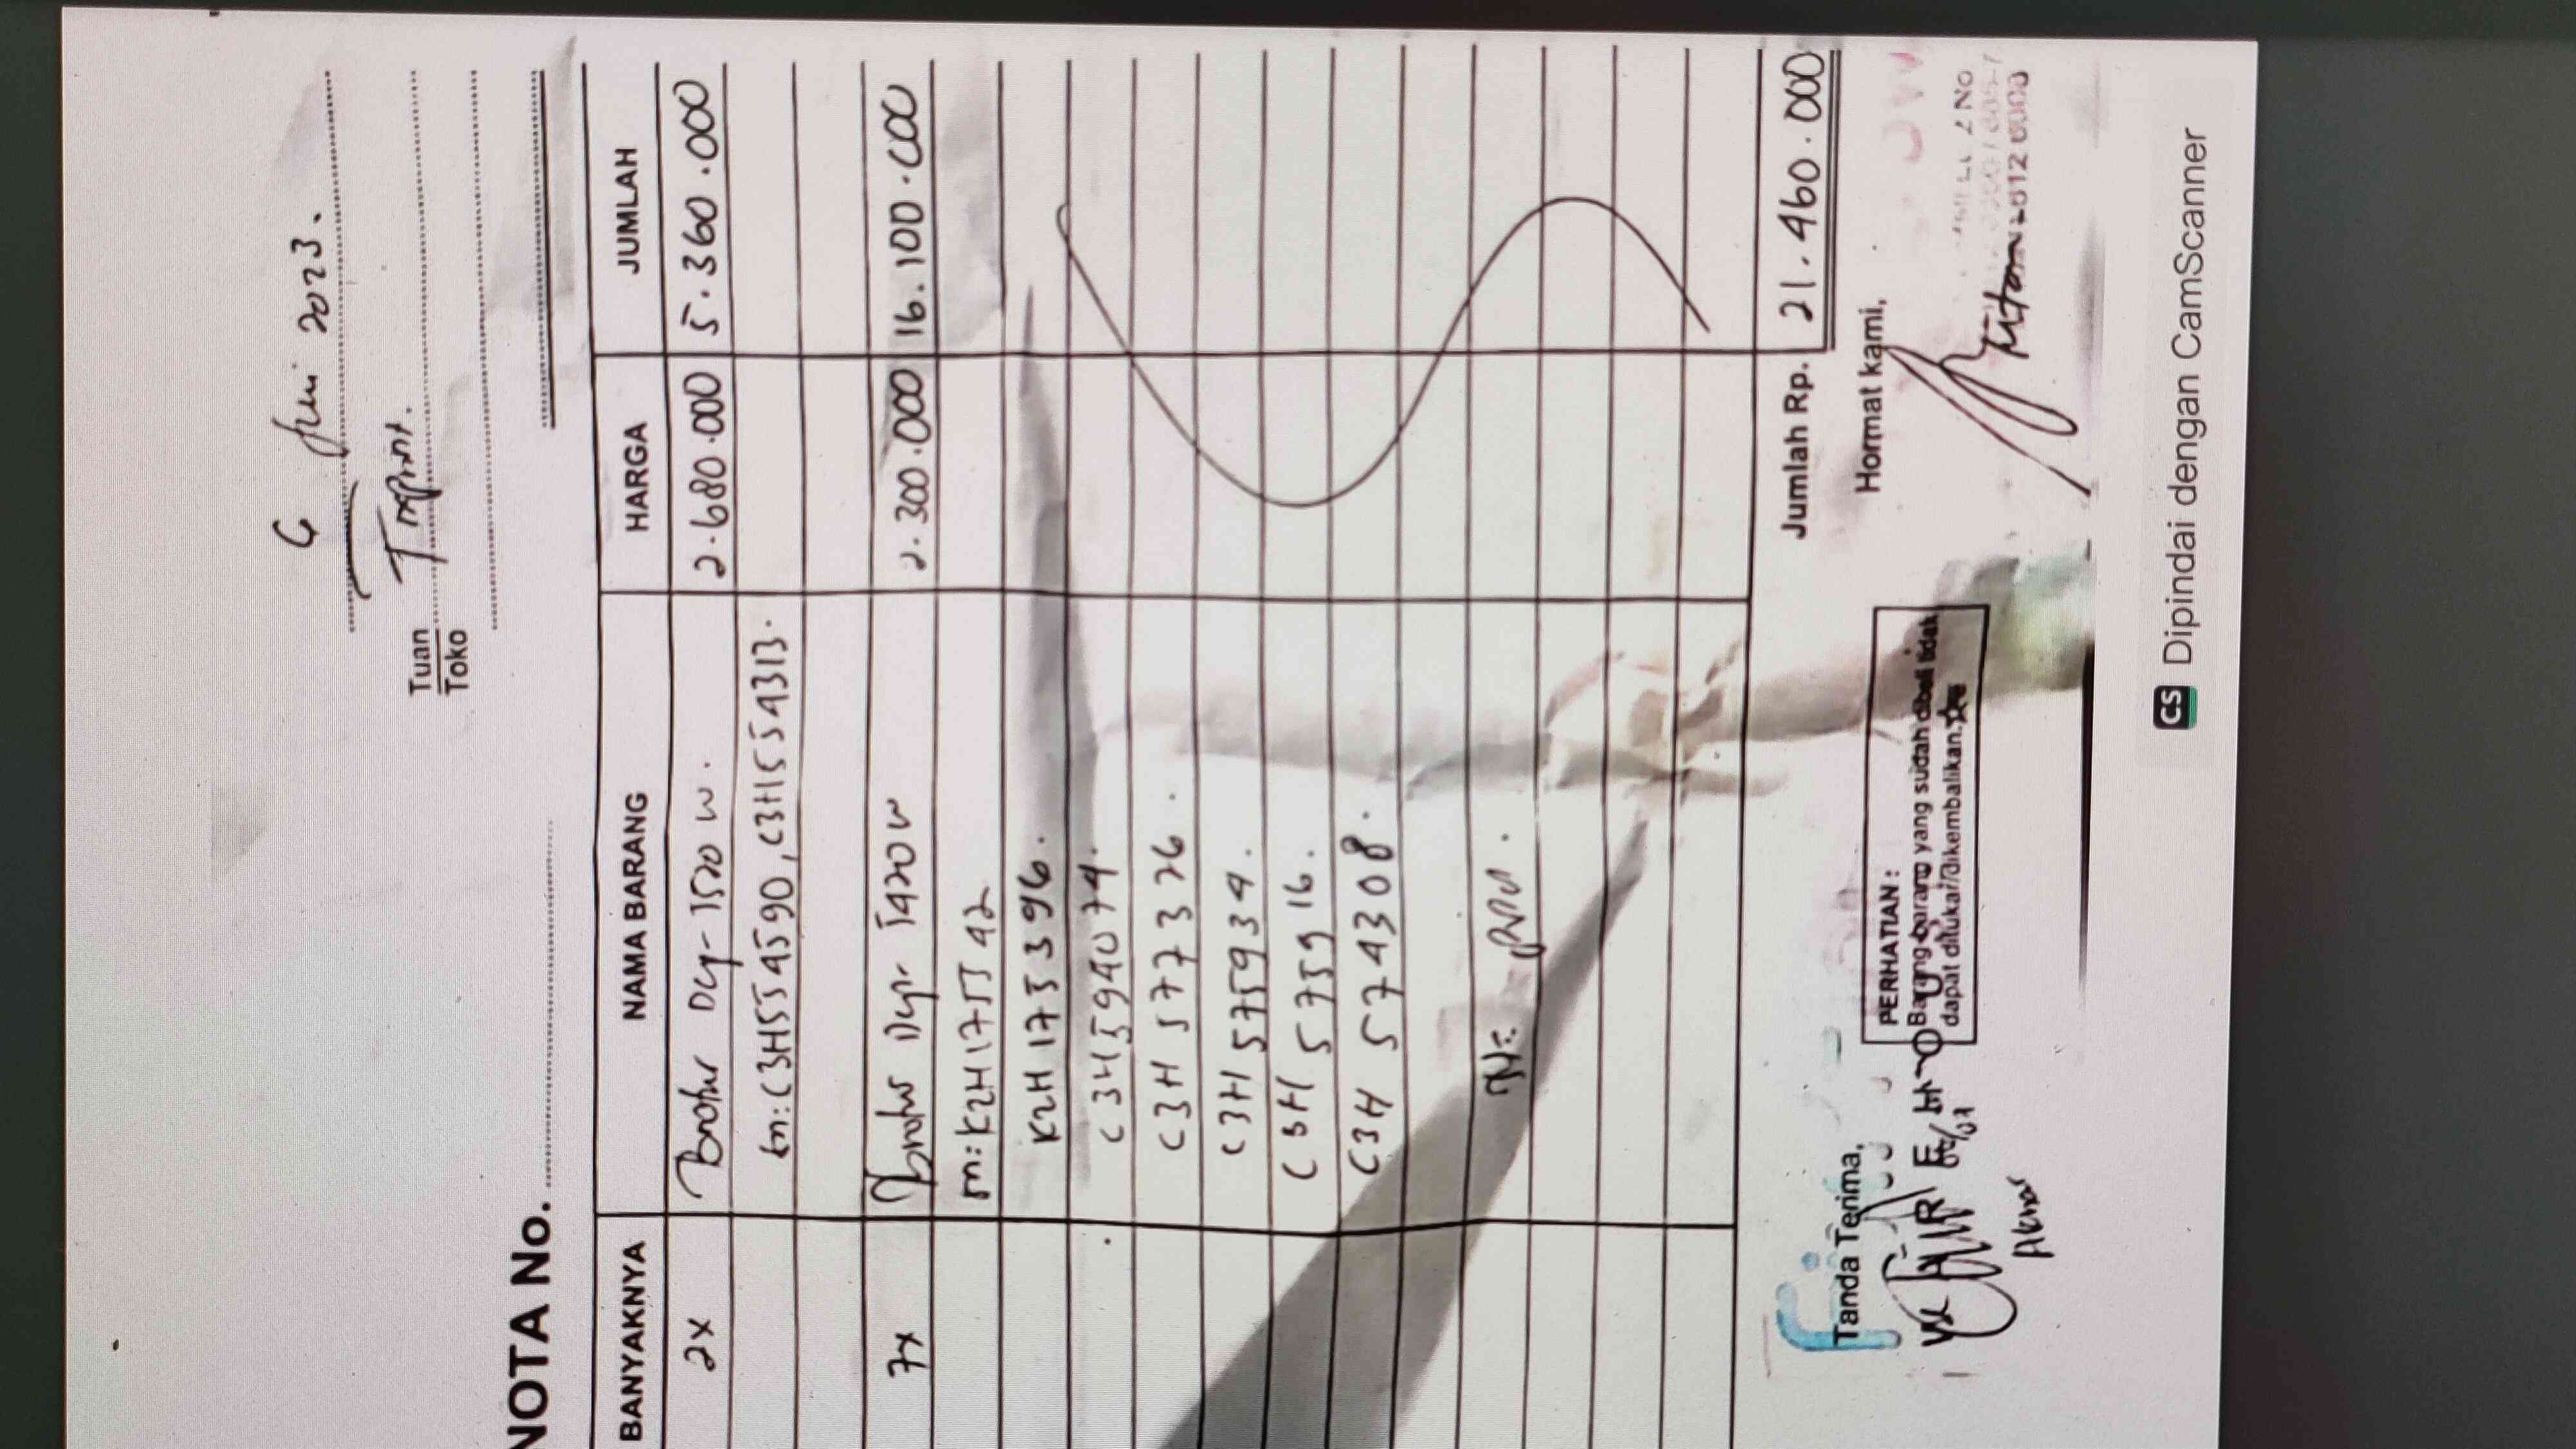 6 Juni 2023.
Tuan
Toko
NOTA No.
BANYAKNYA NAMA BARANG HARGA JUMLAH
2x Brother Dcp-T520 W. 2.680.000 5.360.000
sn:C3H554590, C3H554313.
7x Brother Dcp- T420W 2.300.000 16.100.000
sn:K2H175542
K2H175396.
C3H594074.
C3H577326.
C3H575934.
C3H575916.
C3H574308.
Jumlah Rp. 21.460.000
Tanda Terima,
PERHATIAN :
Barang-barang yang sudah dibeli tidak
dapat ditukar/dikembalikan.
Hormat kami,
CS Dipindai dengan CamScanner